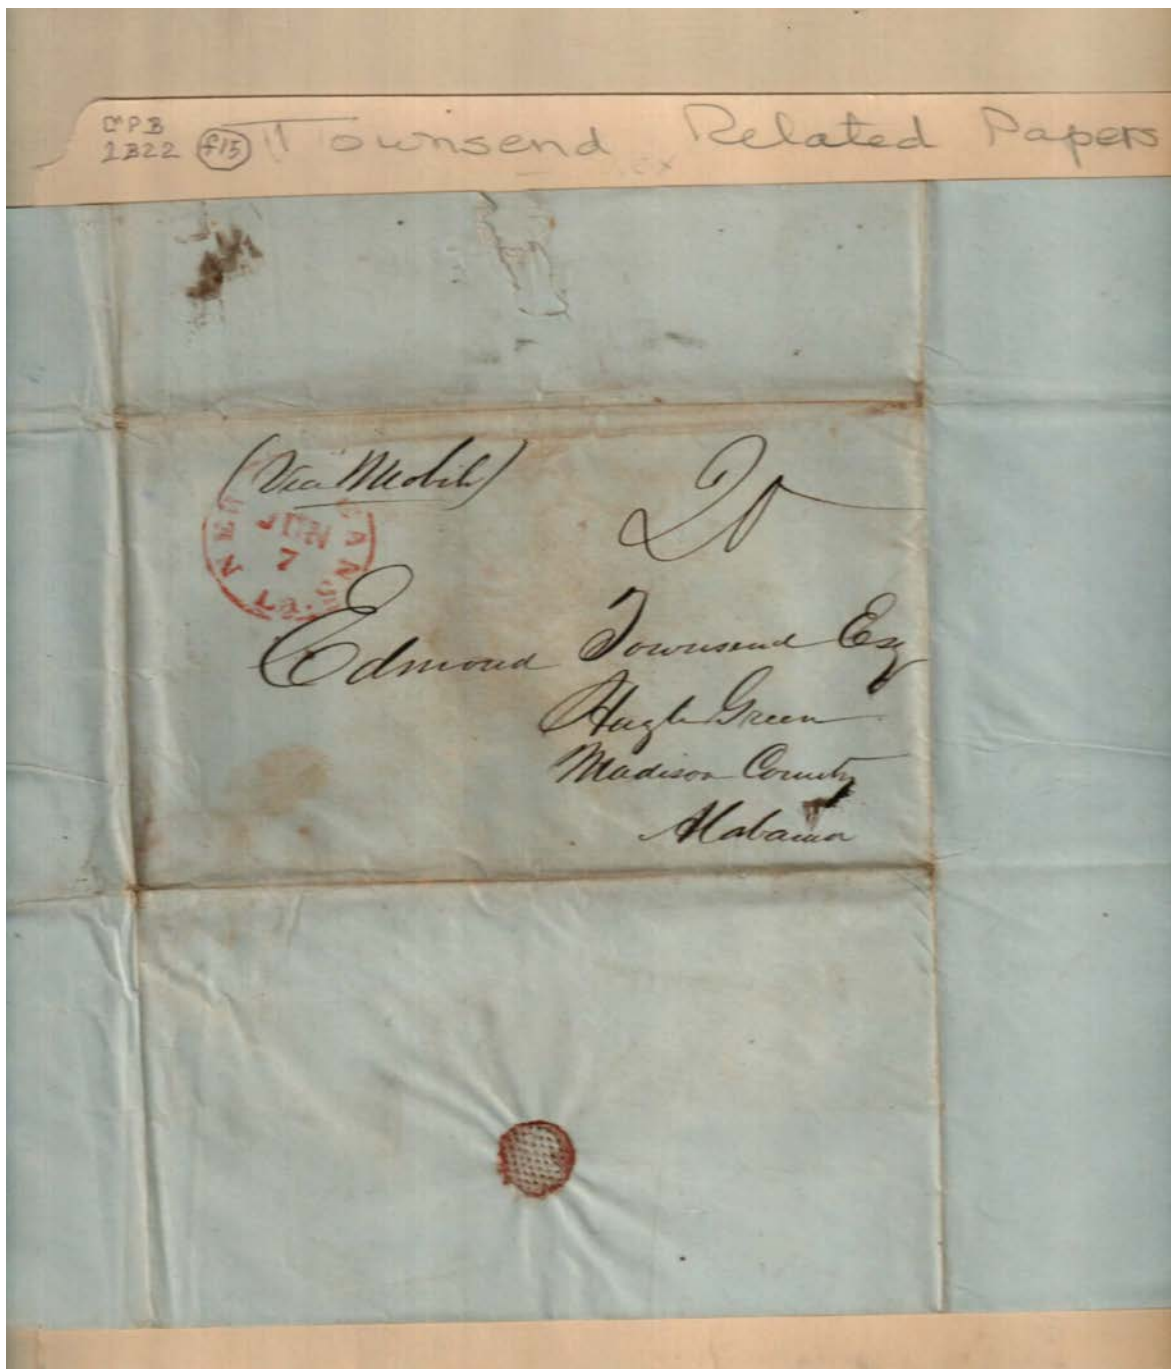 CPB
2B22 f15 Townsend Related Papers
(Via Mobile)
20
NEW ANS
JUN
7
La.
Edmond Townsend Esq
Hugh Green
Madison County
Alabama